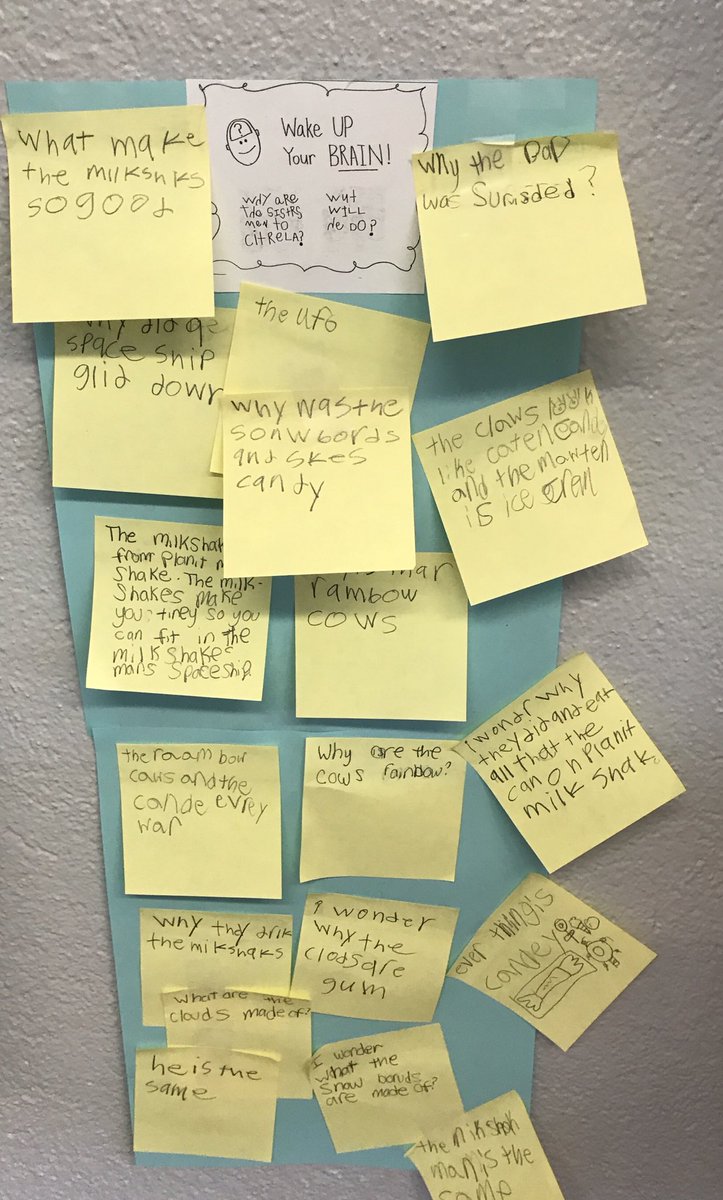 What make
the milkshks
so good
Wake UP
Your BRAIN!
WhY ARE
Tdo SiSTRS
MeN TO
CiTReLA?
WUT
WiLL
he DO?
Why the DaD
was
?
why did
space ship
glid down
the ufo
why was the
sonw bords
and skes
candy
the claws look
like coten cande
and the
is ice crem
The milkshak
from Planit m
Shake. The milk-
Shakes make
you tiney so you
can fit in the
milk shake
mans spaceship.
rambow
cows
the raambow
cows and the
cande evrey
war
Why are the
cows rainbow?
I wonder why
they did and eat
all that the
can on Planit
milk shak.
why thy drik
the milkshaks
I wonder
why the
clodsare
gum
ever thing is
candey
What are the
clouds made of?
he is the
same
I wonder
what the
snow bords
are made of?
the milkshak
man is the
same